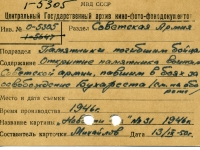 1-5305
МВД СССР
Центральный Государственный архив кино-фото-фонодокументов
Инв. № 0-5305 Раздел Советская Армия
Подразд. Памятники погибшим бойцам
Содержание Открытие памятника воинам
Советской армии, павшим в боях за
освобождение Бухареста
Место и дата съемки
Время производства 1946 г.
Название картины Новости дня № 31 1946г.
Составитель карточки Михайлов 13/ 50г.